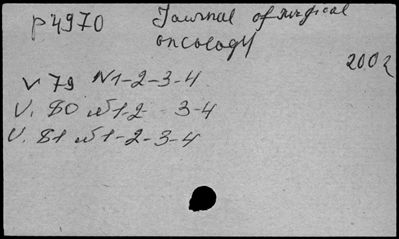 p 4970 Journal of surgical
oncology
2002
V 79 N1-2-3-4
V. 80 N1-2 3-4
V. 81 N1-2-3-4